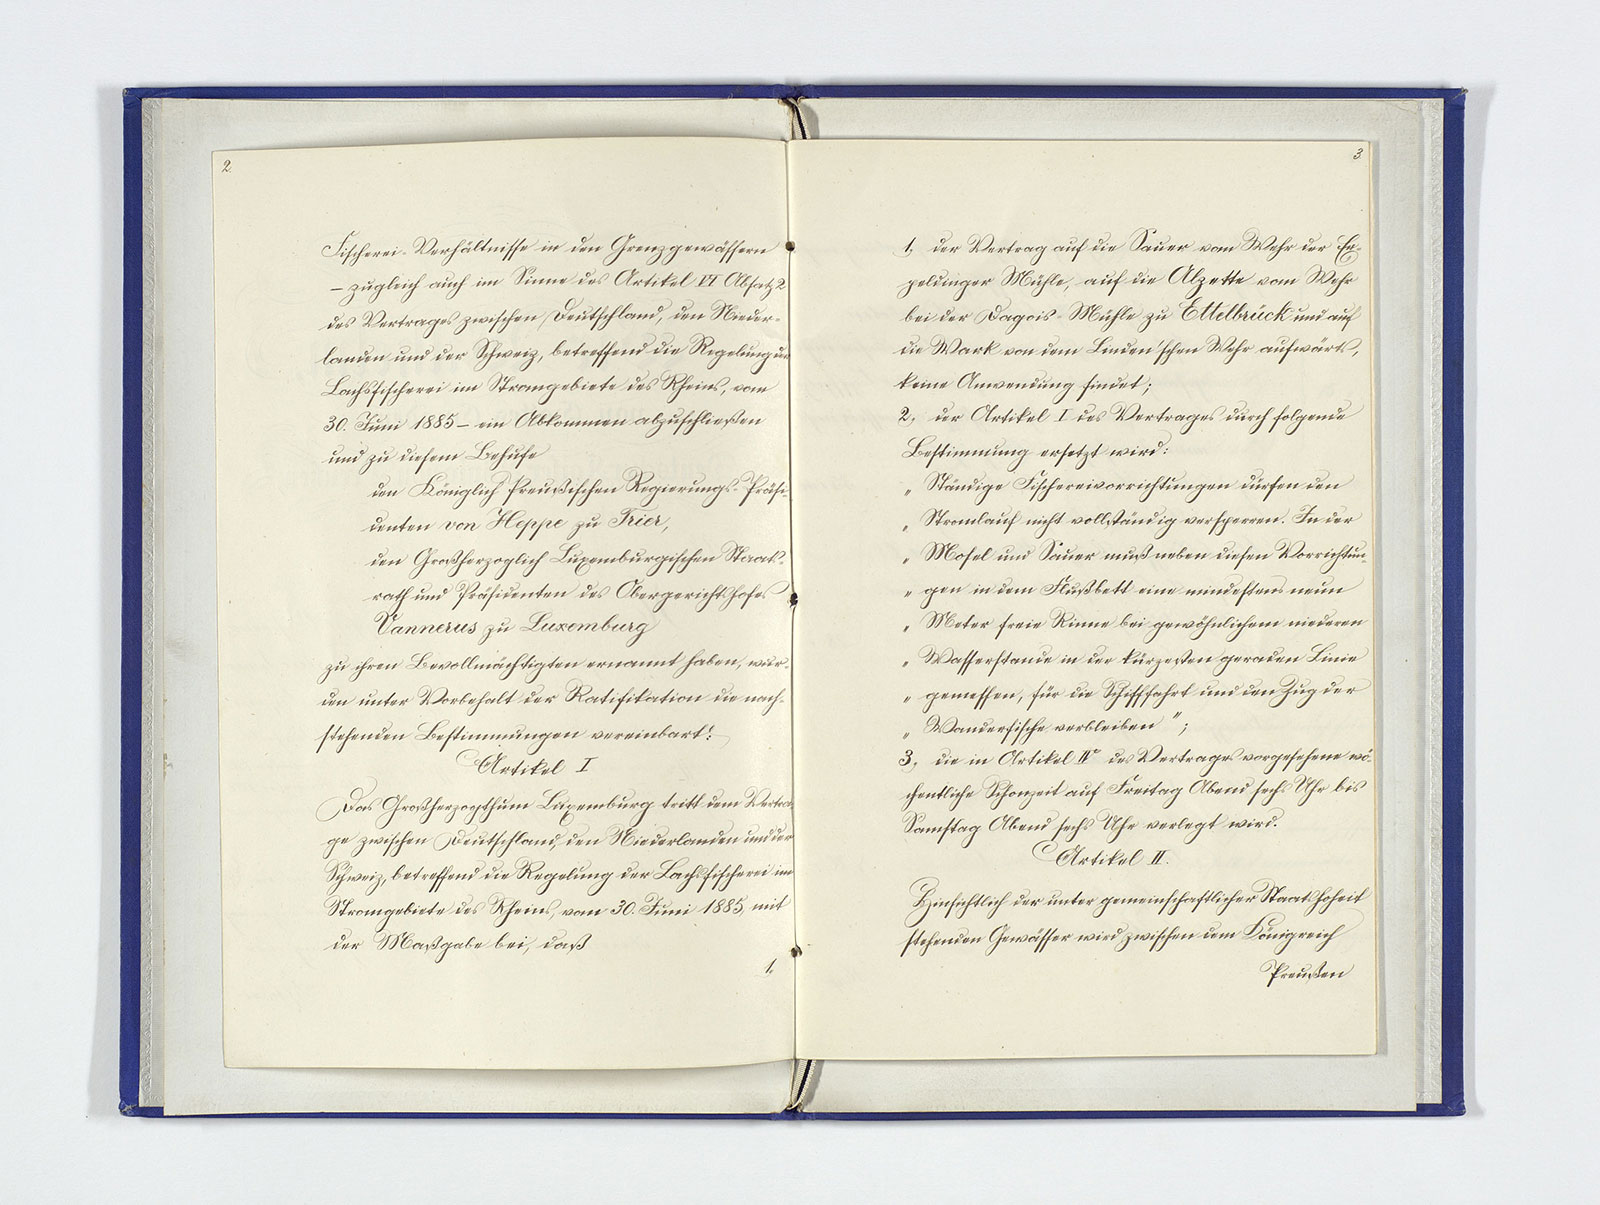 2.
Fischerei-Verhältnisse in den Grenzgewässern
– zugleich auch im Sinne des Artikel VI Absatz 2
des Vertrages zwischen Deutschland, den Nieder-
landen und der Schweiz, betreffend die Regelung der
Lachsfischerei im Stromgebiete des Rheins, vom
30. Juni 1885 – ein Abkommen abzuschließen
und zu diesem Behufe
den Königlich Preußischen Regierungs-Präsi-
denten von Heppe zu Trier,
den Großherzoglich Luxemburgischen Staats-
rath und Präsidenten des Obergerichtshofes
Vannerus zu Luxemburg
zu ihren Bevollmächtigten ernannt haben, wur-
den unter Vorbehalt der Ratifikation die nach-
stehenden Bestimmungen vereinbart:
Artikel I
Das Großherzogthum Luxemburg tritt dem Vertra-
ge zwischen Deutschland, den Niederlanden und der
Schweiz, betreffend die Regelung der Lachsfischerei im
Stromgebiete des Rheins, vom 30. Juni 1885, mit
der Maßgabe bei, daß
1,
3.
1, der Vertrag auf die Sauer vom Wehr der Er-
peldinger Mühle, auf die Alzette vom Wehr
bei der Dagois-Mühle zu Ettelbrück und auf
die Wark von dem Linden'schen Wehr aufwärts,
keine Anwendung findet;
2, der Artikel I des Vertrages durch folgende
Bestimmung ersetzt wird:
„ Ständige Fischereivorrichtungen dürfen den
„ Stromlauf nicht vollständig versperren. In der
„ Mosel und Sauer muß neben diesen Vorrichtun-
„ gen in dem Flußbett eine mindestens neun
„ Meter freie Rinne bei gewöhnlichem niederen
„ Wasserstande in der kürzesten geraden Linie
„ gemessen, für die Schifffahrt und den Zug der
„ Wanderfische verbleiben";
3, die in Artikel IV des Vertrages vorgesehene wö-
chentliche Schonzeit auf Freitag Abend sechs Uhr bis
Samstag Abend sechs Uhr verlegt wird.
Artikel II.
Hinsichtlich der unter gemeinschaftlicher Staatshoheit
stehenden Gewässer wird zwischen dem Königreich
Preußen